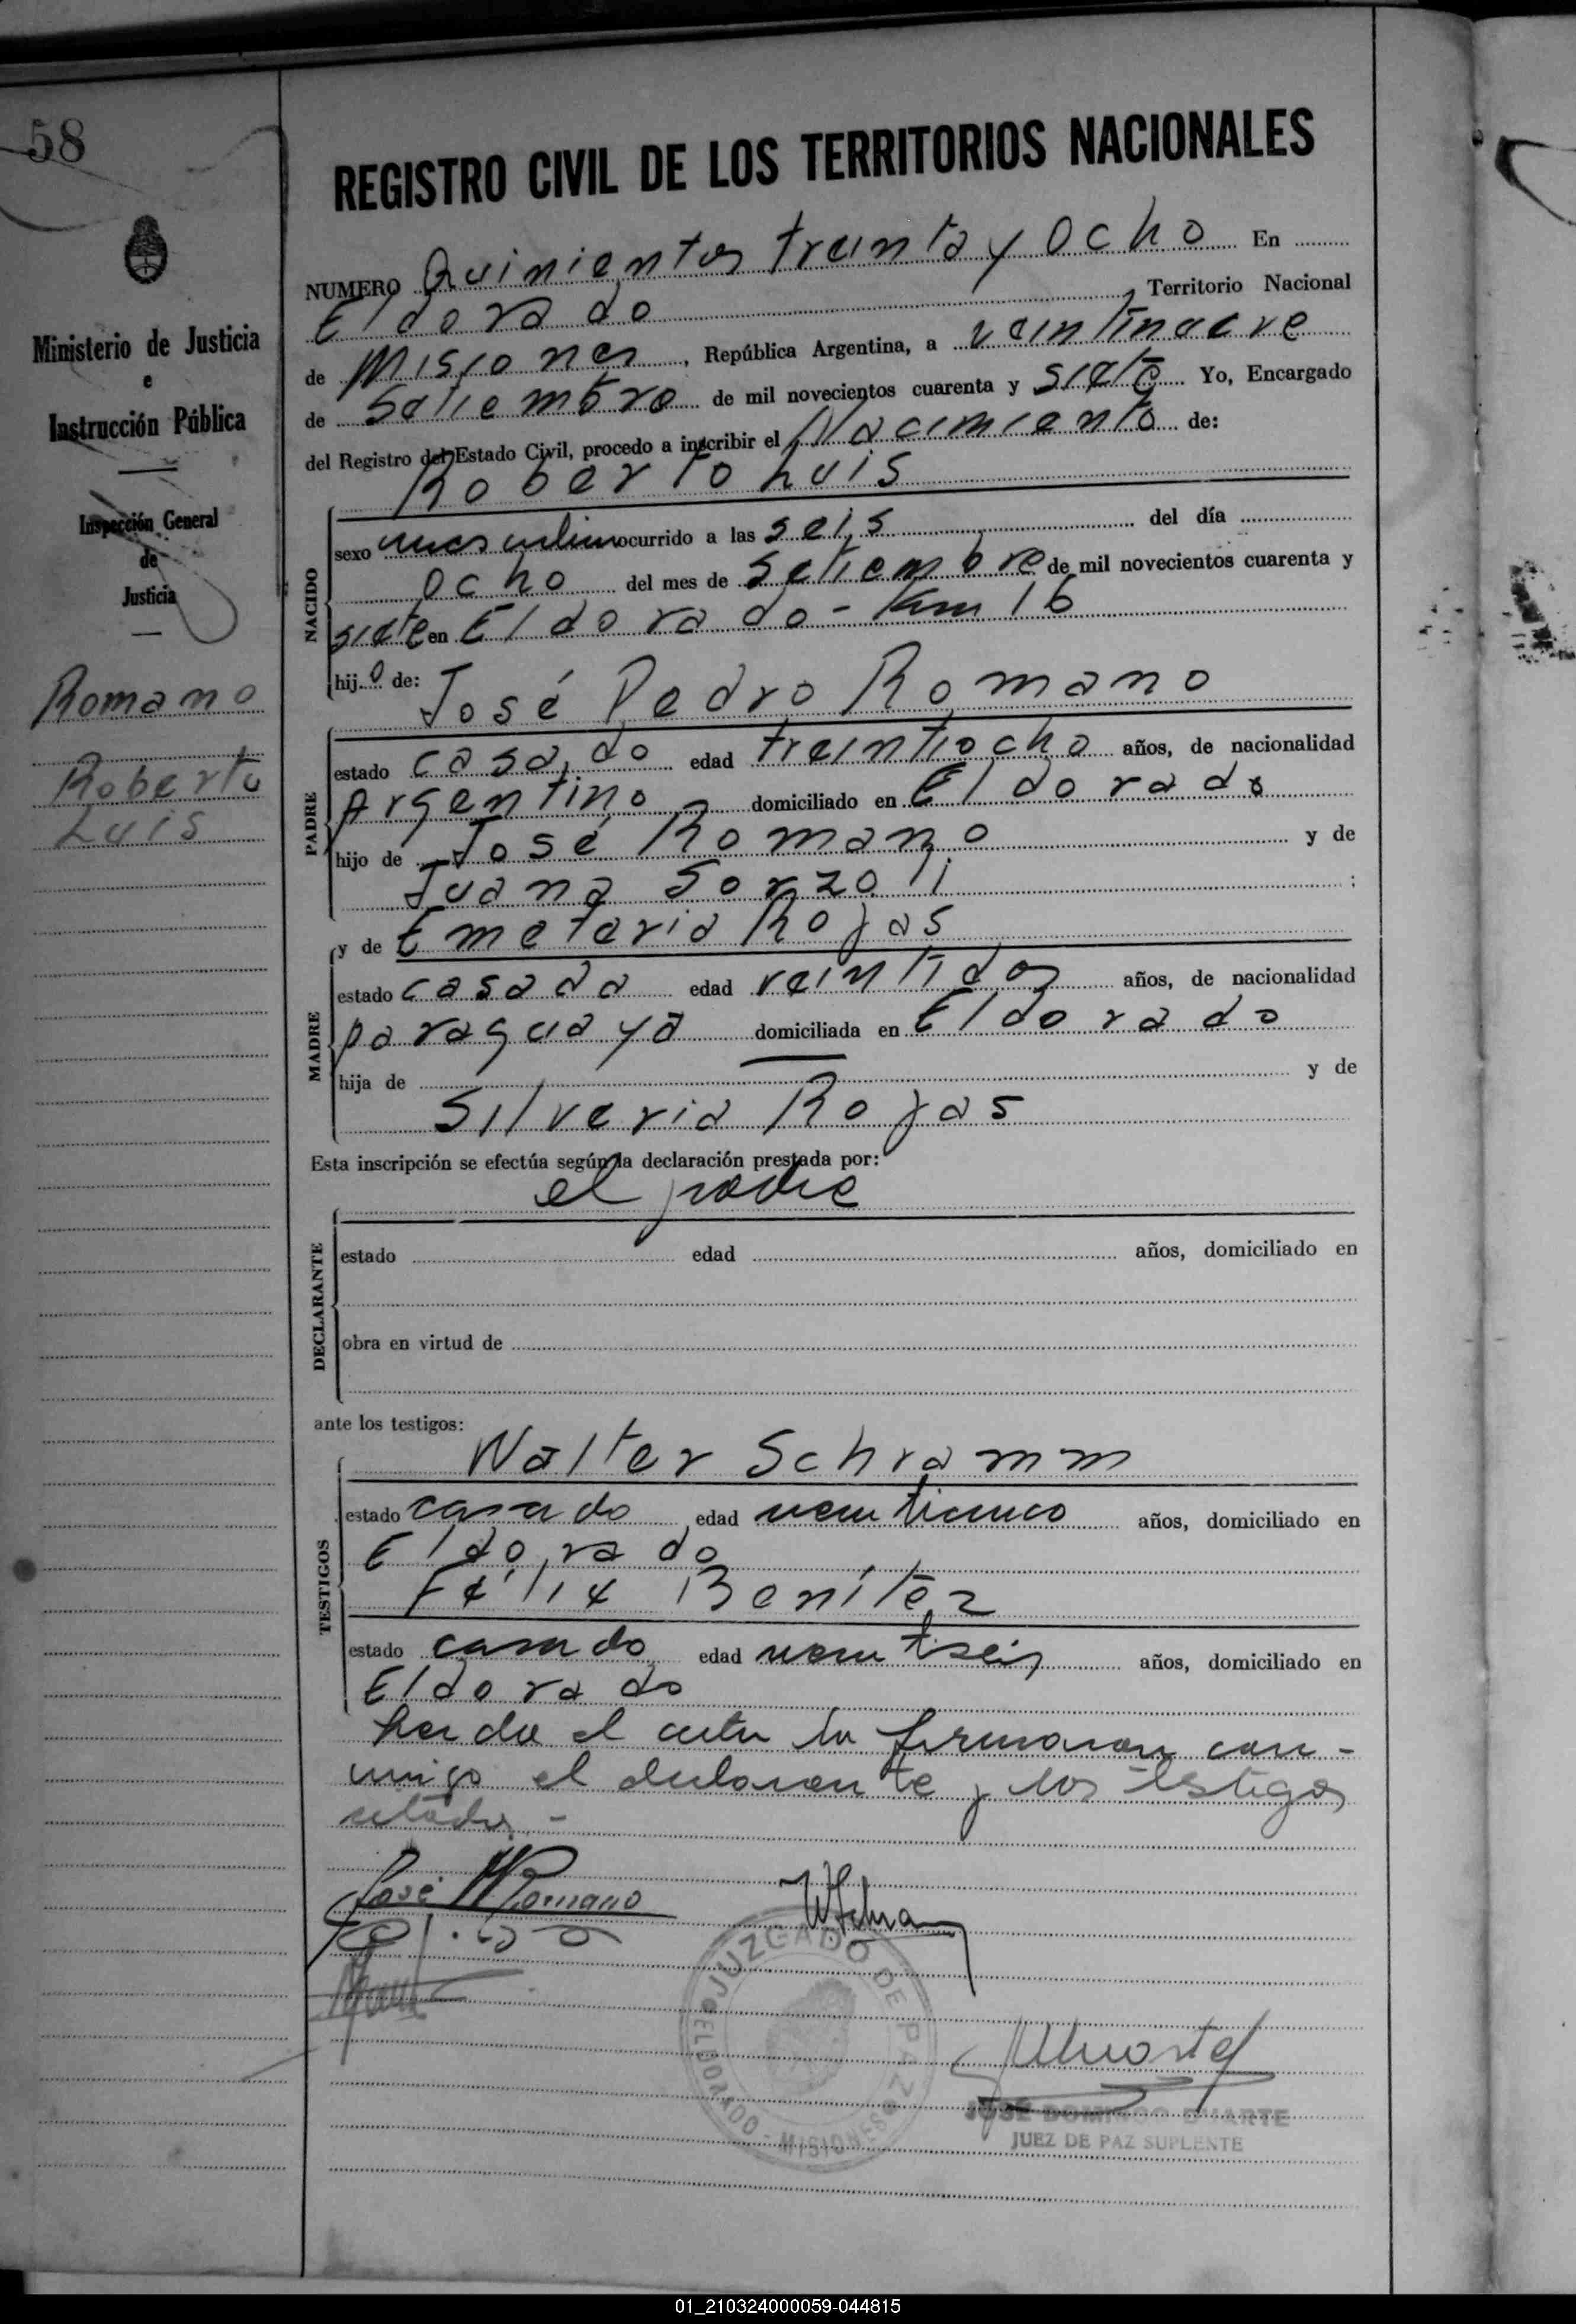 58
Ministerio de Justicia
e
Instrucción Pública
Inspección General
de
Justicia
Romano
Roberto
Luis
REGISTRO CIVIL DE LOS TERRITORIOS NACIONALES
NUMERO Quinientos treinta y Ocho En
Eldorado, Territorio Nacional
de Misiones, República Argentina, a veintinueve
de Setiembre de mil novecientos cuarenta y siete Yo, Encargado
del Registro del Estado Civil, procedo a inscribir el Nacimiento de:
Roberto Luis
NACIDO
sexo masculino ocurrido a las seis del día
ocho del mes de Setiembre de mil novecientos cuarenta y
siete en Eldorado - Km 16
hijo de:
José Pedro Romano
PADRE
estado casado edad treintiocho años, de nacionalidad
Argentino domiciliado en Eldorado
hijo de José Romano y de
Juana Sorzoli;
y de Emeteria Rojas
MADRE
estado casada edad veintidos años, de nacionalidad
paraguaya domiciliada en Eldorado
hija de — y de
Silveria Rojas
Esta inscripción se efectúa según la declaración prestada por:
el padre
DECLARANTE
estado edad años, domiciliado en
obra en virtud de
ante los testigos:
Walter Schramm
TESTIGOS
estado casado edad veinticinco años, domiciliado en
Eldorado
Félix Benítez
estado casado edad veintiseis años, domiciliado en
Eldorado
Leida el acta la firmaron con-
migo el declarante y los testigos
citados. -
José P Romano
JUZGADO DE PAZ
ELDORADO - MISIONES
JOSE DOMINGO DUARTE
JUEZ DE PAZ SUPLENTE
01_210324000059-044815